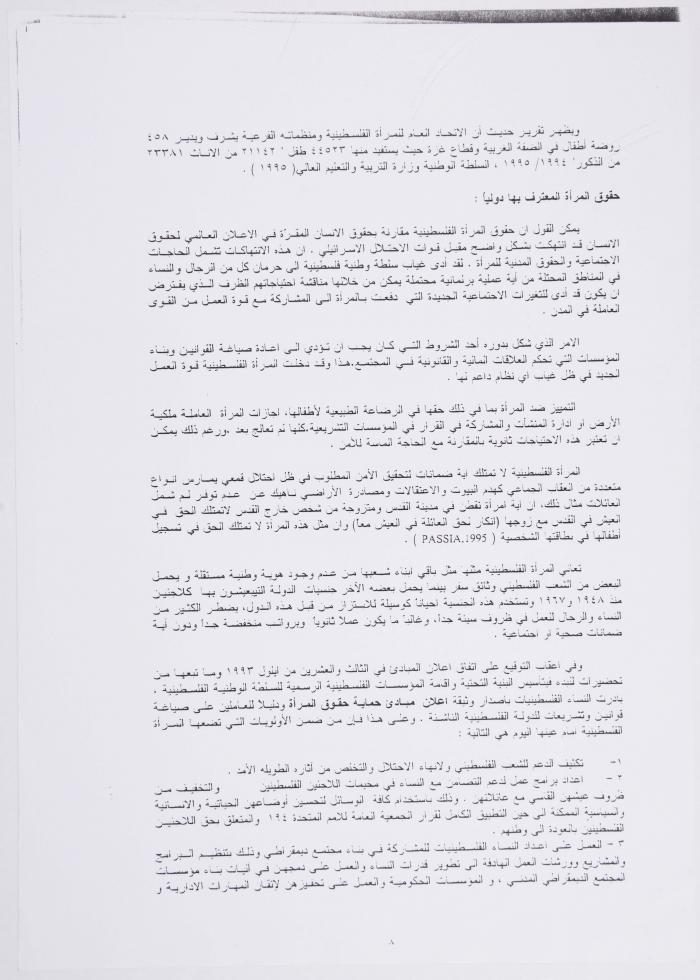 ويظهر تقرير حديث أن الاتحاد العام للمرأة الفلسطينية ومنظماته الفرعية يشرف ويدير ٤٥٨
روضة أطفال في الضفة الغربية وقطاع غزة حيث يستفيد منها ٤٤٥٢٣ طفل " ٢١١٤٢ من الاناث ٢٣٣٨١
من الذكور" ١٩٩٤/ ١٩٩٥ ، السلطة الوطنية وزارة التربية والتعليم العالي( ١٩٩٥ ) .
حقوق المرأة المعترف بها دولياً :
يمكن القول ان حقوق المرأة الفلسطينية مقارنة بحقوق الانسان المقرّة في الاعلان العالمي لحقوق
الانسان قد انتهكت بشكل واضح مقبل قوات الاحتلال الاسرائيلي . ان هذه الانتهاكات تشمل الحاجات
الاجتماعية والحقوق المدنية للمرأة . لقد أدى غياب سلطة وطنية فلسطينية الى حرمان كل من الرجال والنساء
في المناطق المحتلة من أية عملية برلمانية محتملة يمكن من خلالها مناقشة احتياجاتهم الظرف الذي يفترض
ان يكون قد أدى للتغيرات الاجتماعية الجديدة التي دفعت بالمرأة الى المشاركة مع قوة العمل من القوى
العاملة في المدن .
الامر الذي شكل بدوره أحد الشروط التي كان يجب ان تؤدي الى اعادة صياغة القوانين وبناء
المؤسسات التي تحكم العلاقات المالية والقانونية في المجتمع.هذا وقد دخلت المرأة الفلسطينية قوة العمل
الجديد في ظل غياب اي نظام داعم لها .
التمييز ضد المرأة بما في ذلك حقها في الرضاعة الطبيعية لأطفالها، اجازات المرأة العاملة ملكية
الأرض او ادارة المنشآت والمشاركة في القرار في المؤسسات التشريعية.كلها لم تعالج بعد ،ورغم ذلك يمكن
ان تعتبر هذه الاحتياجات ثانوية بالمقارنة مع الحاجة الماسة للأمن .
المرأة الفلسطينية لا تمتلك اية ضمانات لتحقيق الأمن المطلوب في ظل احتلال قمعي يمارس انواع
متعددة من العقاب الجماعي كهدم البيوت والاعتقالات ومصادرة الأراضي ناهيك عن عدم توفر لم شمل
العائلات مثال ذلك، ان اية امرأة تقض في مدينة القدس ومتزوجة من شخص خارج القدس لاتمتلك الحق في
العيش في القدس مع زوجها (انكار لحق العائلة في العيش معاً) وان مثل هذه المرأة لا تمتلك الحق في تسجيل
أطفالها في بطاقتها الشخصية ( PASSIA.1995 ) .
تعاني المرأة الفلسطينية مثلها مثل باقي ابناء شعبها من عدم وجود هوية وطنية مستقلة و يحمل
البعض من الشعب الفلسطيني وثائق سفر بينما يحمل بعضه الأخر جنسيات الدولة التييعيشون بها كلاجئين
منذ ١٩٤٨ و١٩٦٧ وتستخدم هذه الجنسية احياناً كوسيلة للابتزاز من قبل هذه الدول، يضطر الكثير من
النساء والرجال للعمل في ظروف سيئة جداً، وغالباً ما يكون عملاً ثانوياً وبرواتب منخفضة جداً ودون أية
ضمانات صحية او اجتماعية .
وفي اعقاب التوقيع على اتفاق اعلان المبادئ في الثالث والعشرين من ايلول ١٩٩٣ وما تبعها من
تحضيرات للبدء فيتأسيس البنية التحتية واقامة المؤسسات الفلسطينية الرسمية للسلطة الوطنية الفلسطينية ،
بادرت النساء الفلسطينيات بأصدار وثيقة اعلان مبادئ حماية حقوق المرأة ودليلا للعاملين على صياغة
قوانين وتشريعات للدولة الفلسطينية الناشئة . وعلى هذا فإن من ضمن الأولويات التي تضعها المرأة
الفلسطينية امام عينها اليوم هي التالية :
١- تكثيف الدعم للشعب الفلسطيني ولانهاء الاحتلال والتخلص من أثاره الطويله الأمد .
٢ - اعداد برامج عمل لدعم التضامن مع النساء في مخيمات اللاجئين الفلسطينين والتخفيف من
ظروف عيشهن القاسي مع عائلاتهن . وذلك باستخدام كافة الوسائل لتحسين أوضاعهن الحياتية والانسانية
والسياسية الممكنة الى حين التطبيق الكامل لقرار الجمعية العامة للامم المتحدة ١٩٤ والمتعلق بحق اللاجئين
الفلسطينين بالعودة الى وطنهم .
٣ - العمل على اعداد النساء الفلسطينيات للمشاركة في بناء مجتمع ديمقراطي وذلك بتنظيم البرامج
والمشاريع وورشات العمل الهادفة الى تطوير قدرات النساء والعمل على دمجهن في اليات بناء مؤسسات
المجتمع الديمقراطي المدني ، و المؤسسات الحكومية والعمل على تحفيزهن لإتقان المهارات الادارية و
٨